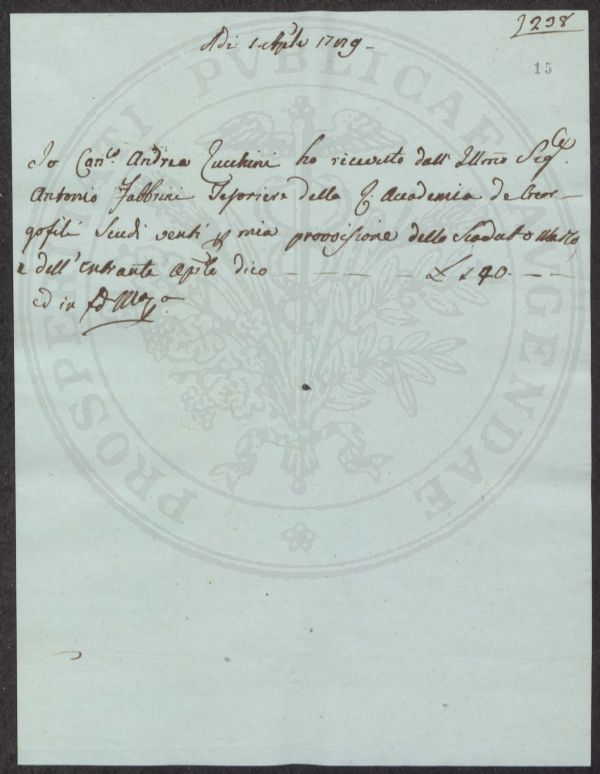 238
15
Adi 1. Aple 1789 –
Io Can.co Andrea Zucchini ho ricevuto dall' Illmo Sig.
Antonio Fabbrini Tesoriere della R. Accademia de Geor-
gofili Scudi venti p mia provvisione dello Scaduto Marzo,
e dell' entrante Aple dico – – – – – £ 140. – –
ed in fd Mo pa
PROSPERITATI PVBLICAE AVGENDAE